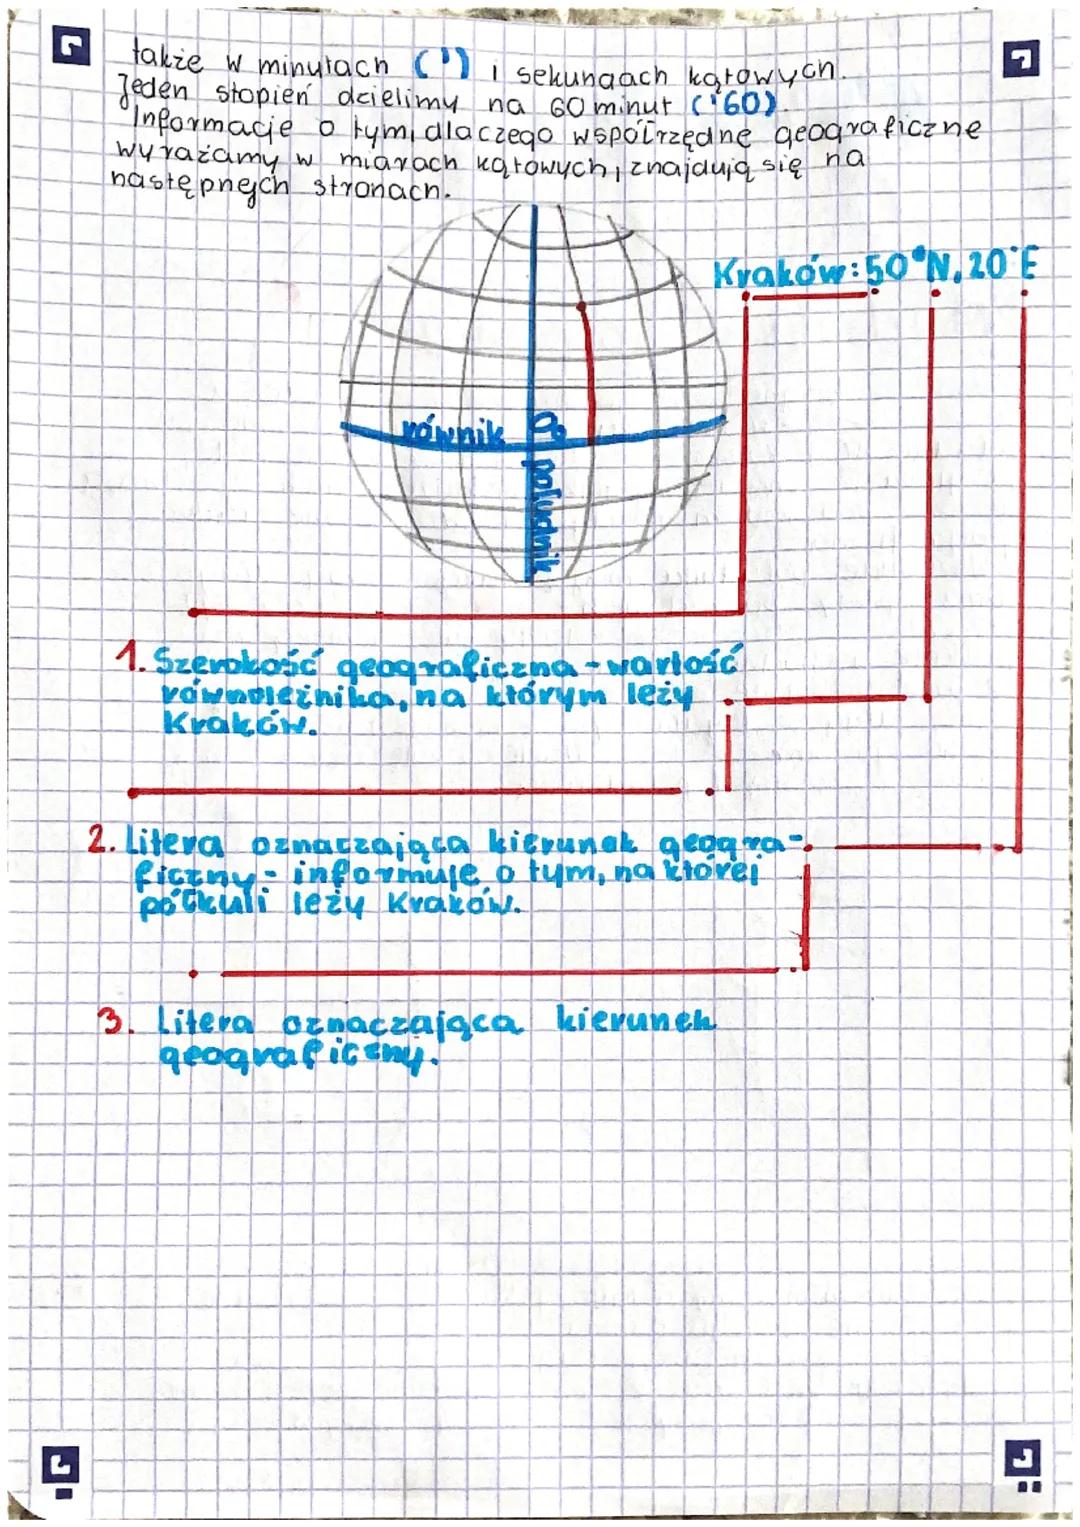 także w minutach (') i sekundach kątowych.
Jeden stopień dzielimy na 60 minut ('60).
Informacje o tym, dlaczego współrzędne geograficzne
wyrażamy w miarach kątowych, znajdują się na
następnych stronach.
Kraków: 50°N, 20°E
równik 0°
południk
1. Szerokość geograficzna - wartość
równoleżnika, na którym leży
Kraków.
2. Litera oznaczająca kierunek geogra-
ficzny - informuje o tym, na której
półkuli leży Kraków.
3. Litera oznaczająca kierunek
geograficzny.